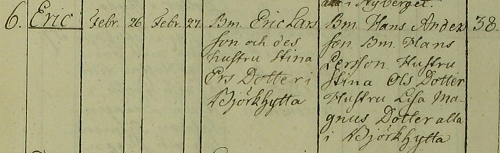 alla i Nyberget.
6. Eric Febr. 26 Febr. 27. Bm. Eric Lars Bm Hans Anders 38.
son och des son Bm. Hans
hustru Stina Persson Hustru
Ers Dotter i Stina Ols Dotter
Björkhytta Hustru Lisa Ma-
gnus Dotter alla
i Björkhytta